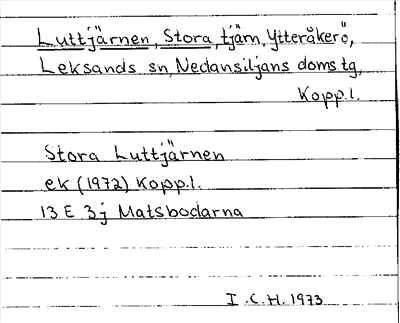 Luttjärnen, Stora, tjärn, Ytteråkerö,
Leksands sn, Nedansiljans domstg,
Kopp.l.
Stora Luttjärnen
ek (1972) Kopp.l.
13 E 3j Matsbodarna
I.C.H. 1973